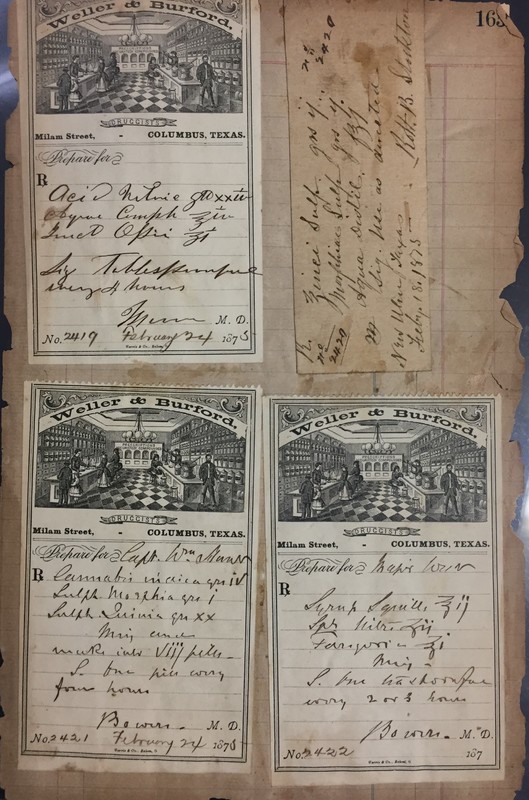 163
Weller & Burford,
DRUGGISTS
Milam Street, - COLUMBUS, TEXAS.
Prepare for
R
Acid Nitric gtt xxiv
Camph ℥iv
Tinct Opii ʒi
Sig Tablespoonful
every 4 hours
M. D.
No. 2419 February 24 1875
R. Zinci Sulp. grs ij.
No 2420
Morphiae Sulp grs ij.
Aqua Distil. f℥j.
M Sig use as directed
New Ulm, Texas
Feby 18, 1875 Robt B. Stockton
No 2420
Weller & Burford,
PRESCRIPTIONS
DRUGGISTS
Milam Street, - COLUMBUS, TEXAS.
Prepare for Capt. Wm
R
Cannabis indica grs iv
Sulph Morphia grs i
Sulph. Quinia grs xx
Mix and
make into VIIj pills
S. One pill every
four hours
Bowers M. D.
No. 2421 February 24 1875
Weller & Burford,
PRESCRIPTIONS
DRUGGISTS
Milam Street, - COLUMBUS, TEXAS.
Prepare for
R
Syrup Squills ℥ij
Spts Nitre ʒij
Paregoric ℥i
Mix
S. One teaspoonful
every 2 or 3 hours
Bowers M. D.
No. 2422 187